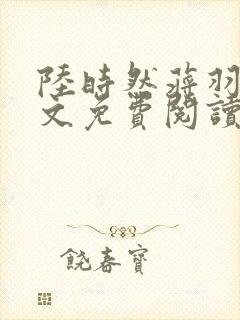 陸時然蒋羽
文免費閱讀
饒春寶